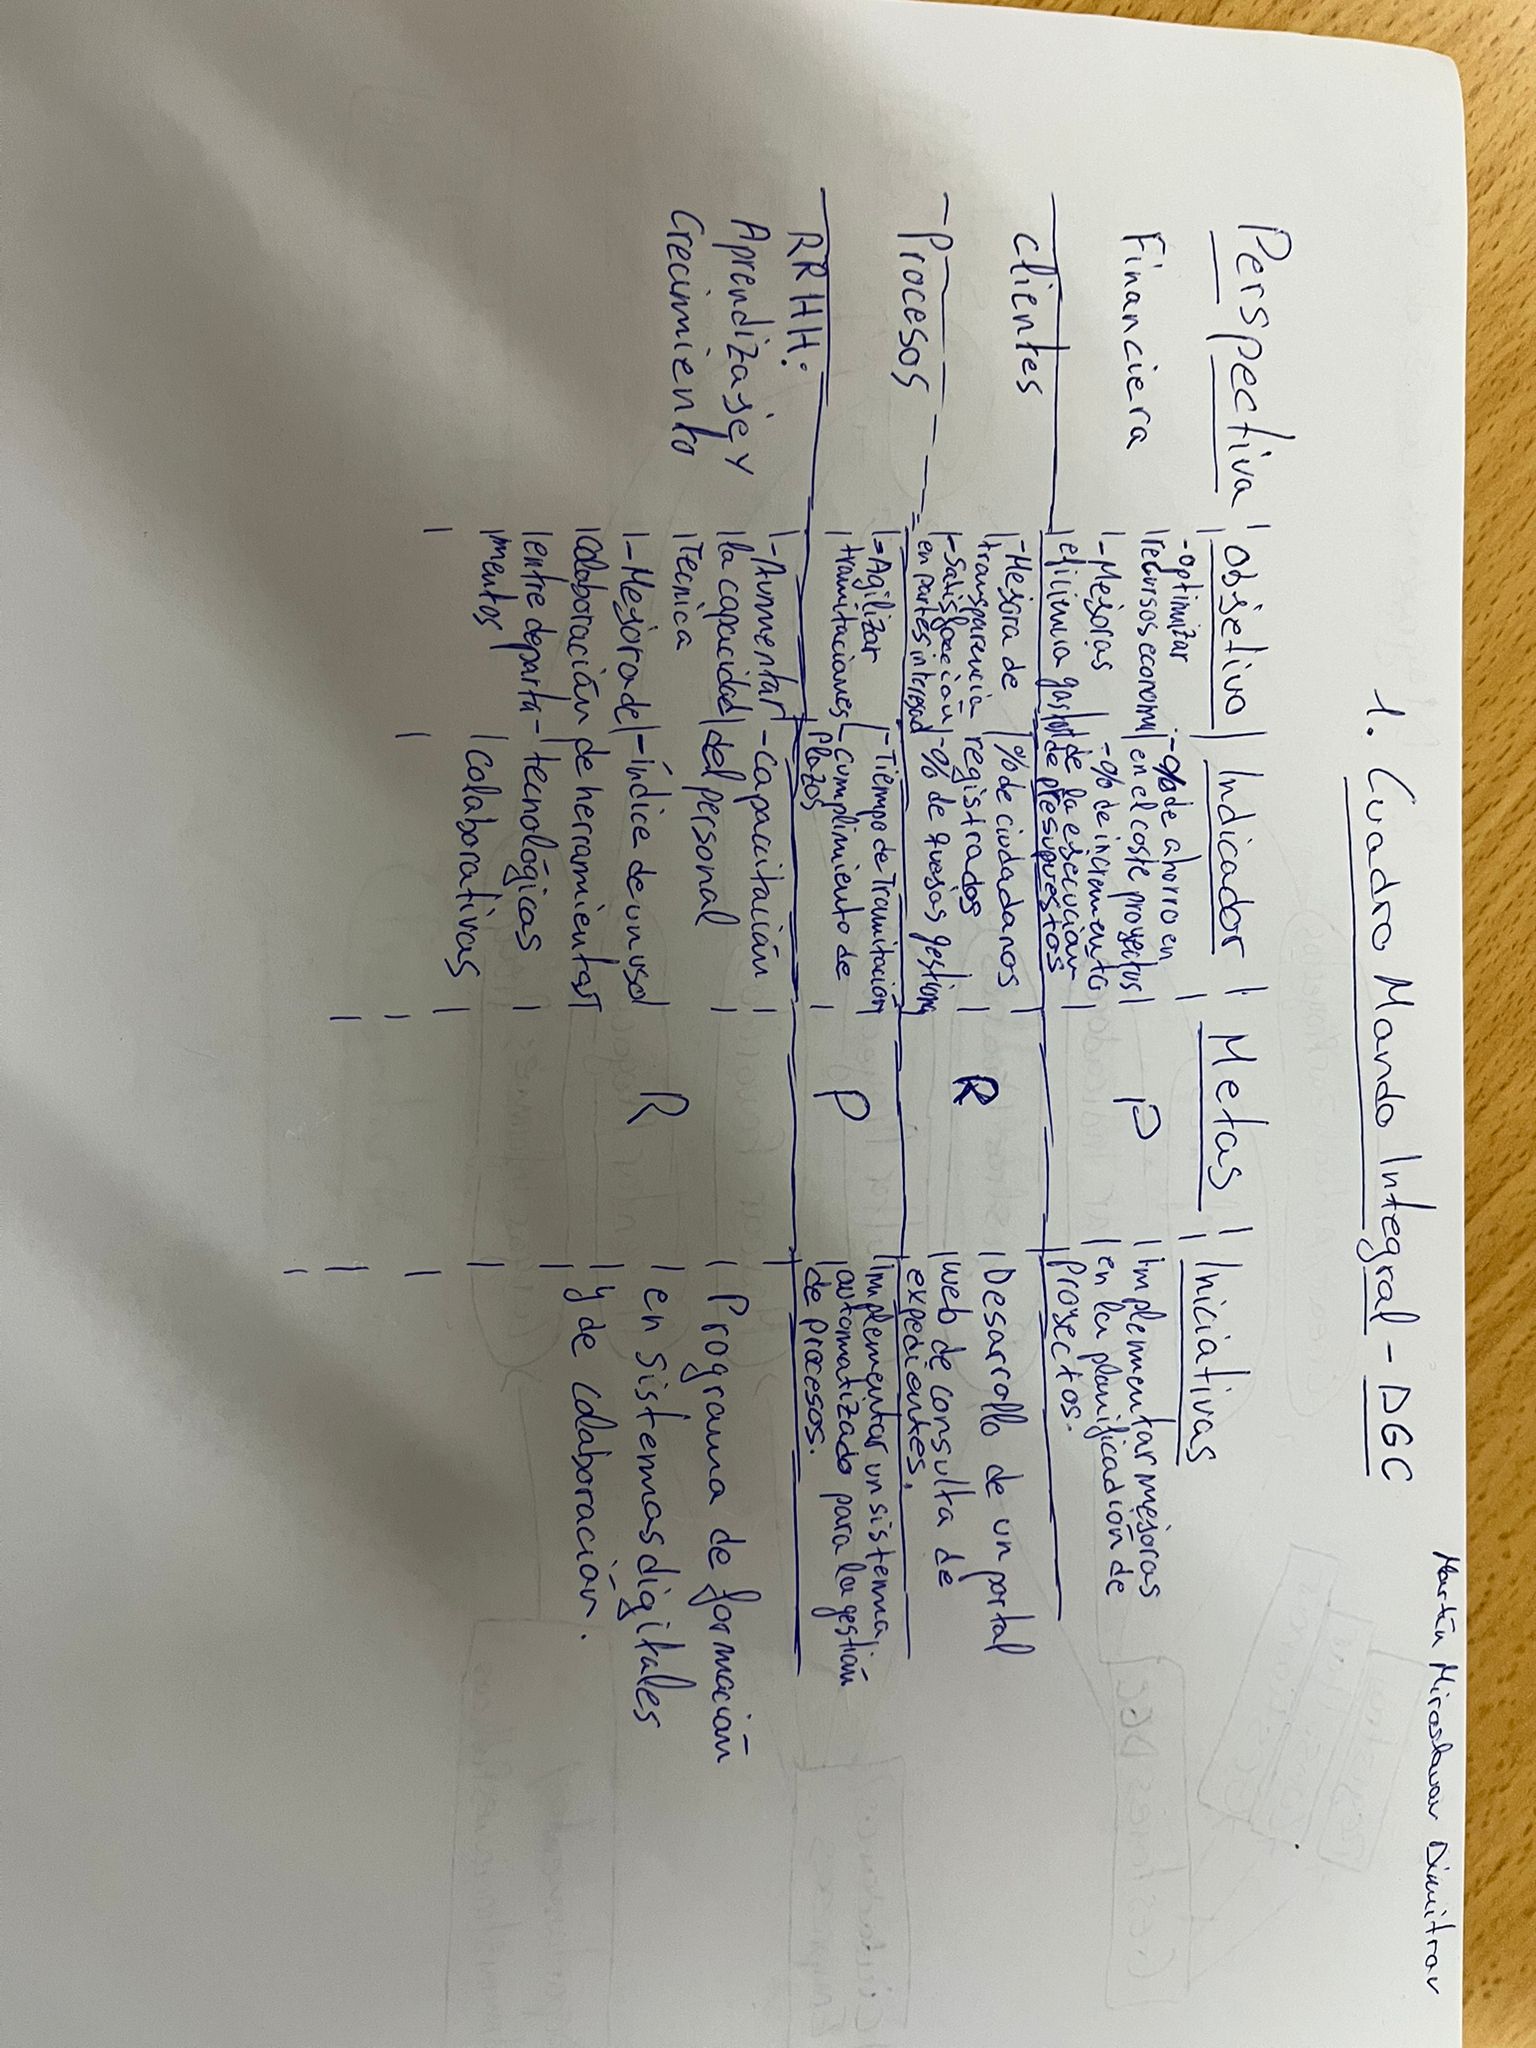 Martín Miroslavov Dimitrov
1. Cuadro Mando Integral - DGC
Perspectiva | Objetivo | Indicador | Metas | Iniciativas
Financiera
- optimizar
recursos econom
- Mejoras
eficiencia
- % de ahorro en
en el coste proyectos
- % de incremento
de la ejecución
de presupuestos
P
Implementar mejoras
en la planificación de
proyectos.
Clientes
- Mejora de
transparencia
- Satisfacción
en partes interesad
% de ciudadanos
registrados
- % de quejas gestiona
R
Desarrollo de un portal
web de consulta de
expedientes.
Procesos
- Agilizar
tramitaciones
- Tiempo de Tramitación
- cumplimiento de
plazos
P
Implementar un sistema
automatizado para la gestión
de procesos.
RRHH:
Aprendizaje y
Crecimiento
- Aumentar
la capacidad
Técnica
- Mejora de
colaboración
entre departa-
mentos
- capacitación
del personal
- índice de un uso
de herramientas
tecnológicas
colaborativas
R
Programa de formación
en sistemas digitales
y de colaboración.